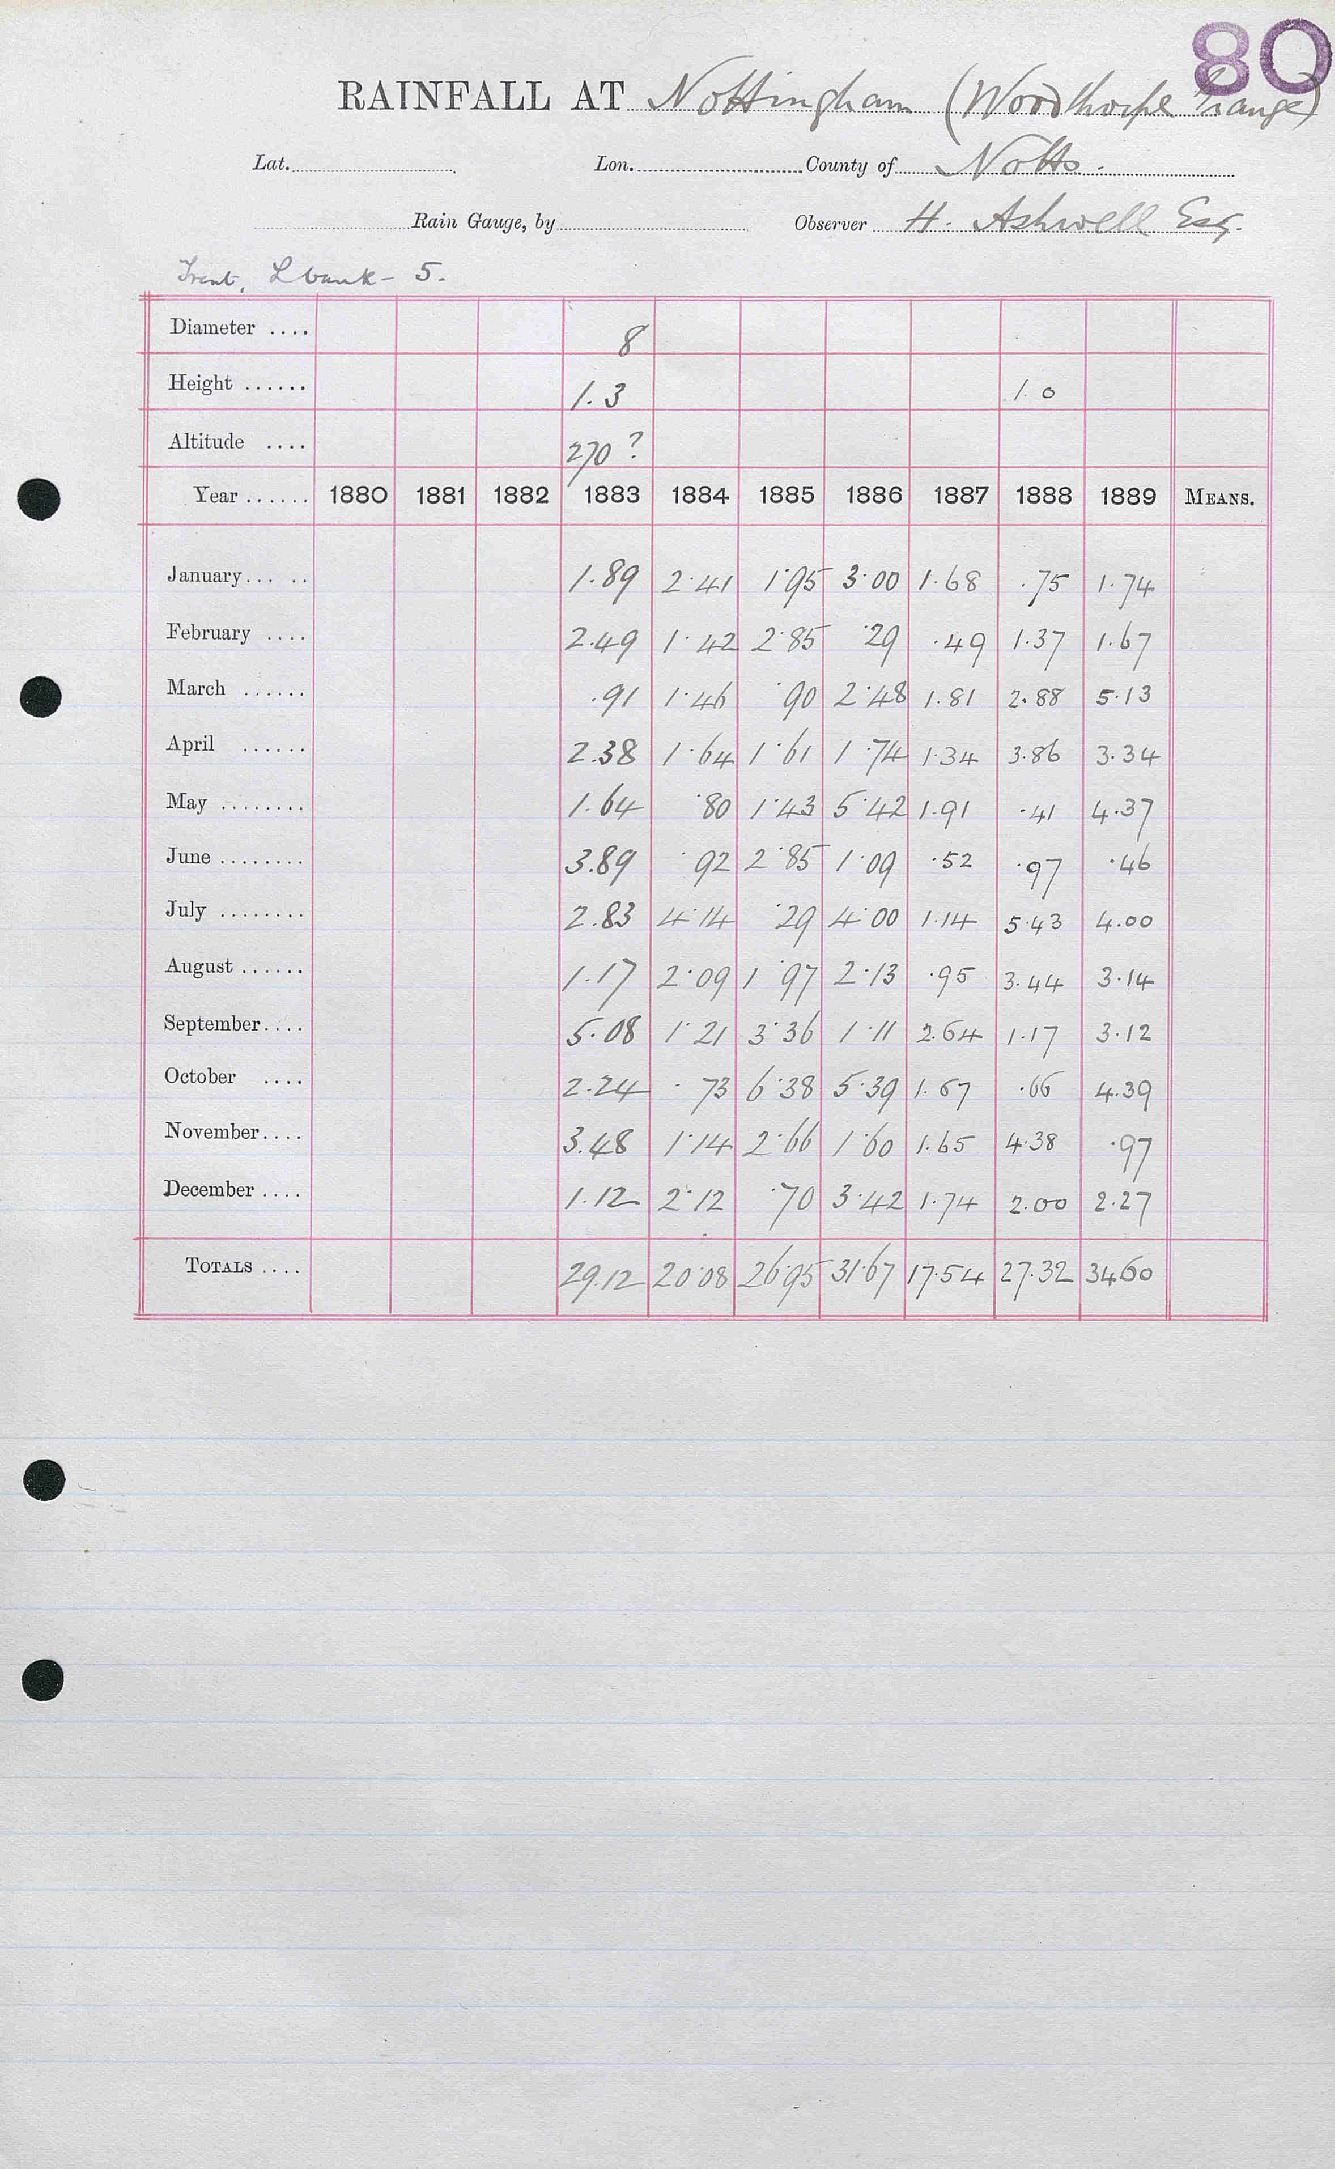 80
RAINFALL AT Nottingham (Woodthorpe Grange)
Lat. Lon. County of Notts.
Rain Gauge, by Observer H. Ashwell Esq.
Trent, L bank - 5.
Diameter .... 8
Height ...... 1.3 1.0
Altitude .... 270 ?
Year ...... 1880 1881 1882 1883 1884 1885 1886 1887 1888 1889 MEANS.
January... .. 1.89 2.41 1.95 3.00 1.68 .75 1.74
February .... 2.49 1.42 2.85 .29 .49 1.37 1.67
March ...... .91 1.46 .90 2.48 1.81 2.88 5.13
April ...... 2.38 1.64 1.61 1.74 1.34 3.86 3.34
May ........ 1.64 .80 1.43 5.42 1.91 .41 4.37
June ........ 3.89 .92 2.85 1.09 .52 .97 .46
July ........ 2.83 4.14 .29 4.00 1.14 5.43 4.00
August ...... 1.17 2.09 1.97 2.13 .95 3.44 3.14
September.... 5.08 1.21 3.36 1.11 2.64 1.17 3.12
October .... 2.24 .73 6.38 5.39 1.67 .66 4.39
November.... 3.48 1.14 2.66 1.60 1.65 4.38 .97
December .... 1.12 2.12 .70 3.42 1.74 2.00 2.27
TOTALS .... 29.12 20.08 26.95 31.67 17.54 27.32 34.60